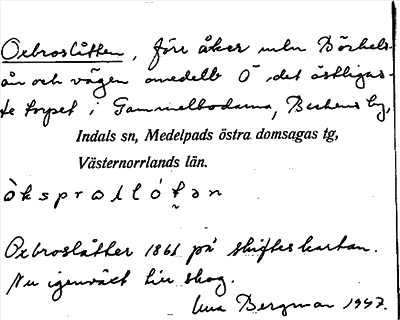 Oxbroslåtten, förr åker mln Börkels-
ån och vägen omedelb Ö det östligas-
te torpet i Gammelbodarna, Beckens by,
Indals sn, Medelpads östra domsagas tg,
Västernorrlands län.
òksprọllótan
Oxbroslåtter 1861 på skifteskartan.
Nu igenväxt till skog.
Bergman 1947.